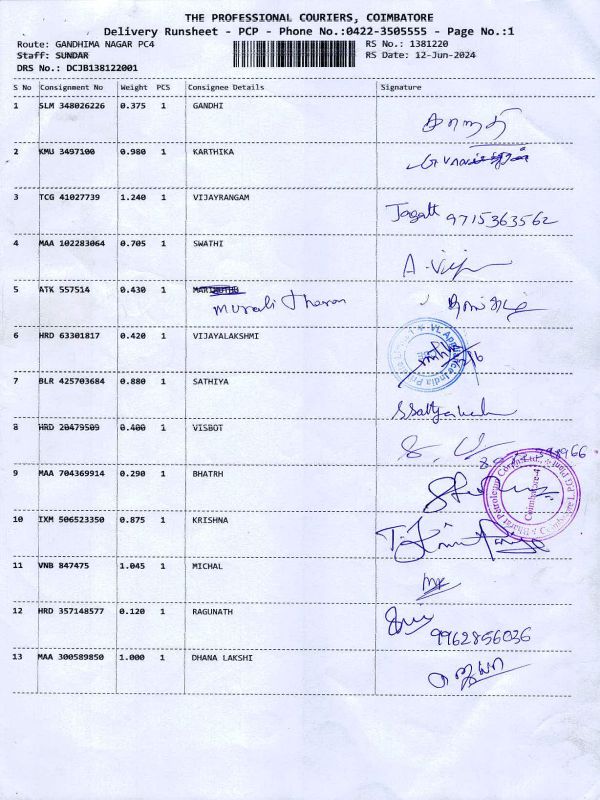 THE PROFESSIONAL COURIERS, COIMBATORE
Delivery Runsheet - PCP - Phone No.:0422-3505555 - Page No.:1
Route: GANDHIMA NAGAR PC4 RS No.: 1381220
Staff: SUNDAR RS Date: 12-Jun-2024
DRS No.: DCJB138122001
S No Consignment No Weight PCS Consignee Details Signature
1 SLM 348026226 0.375 1 GANDHI
2 KMU 3497100 0.980 1 KARTHIKA
3 TCG 41027739 1.240 1 VIJAYRANGAM Jagatt 9715363562
4 MAA 102283064 0.705 1 SWATHI
5 ATK 557514 0.430 1
Murali tharan
6 HRD 63301817 0.420 1 VIJAYALAKSHMI
7 BLR 425703684 0.880 1 SATHIYA
8 HRD 20479509 0.400 1 VISBOT
9 MAA 704369914 0.290 1 BHATRH
Coimbatore-4
10 IXM 506523350 0.875 1 KRISHNA
11 VNB 847475 1.045 1 MICHAL
12 HRD 357148577 0.120 1 RAGUNATH
9962856036
13 MAA 300589850 1.000 1 DHANA LAKSHI